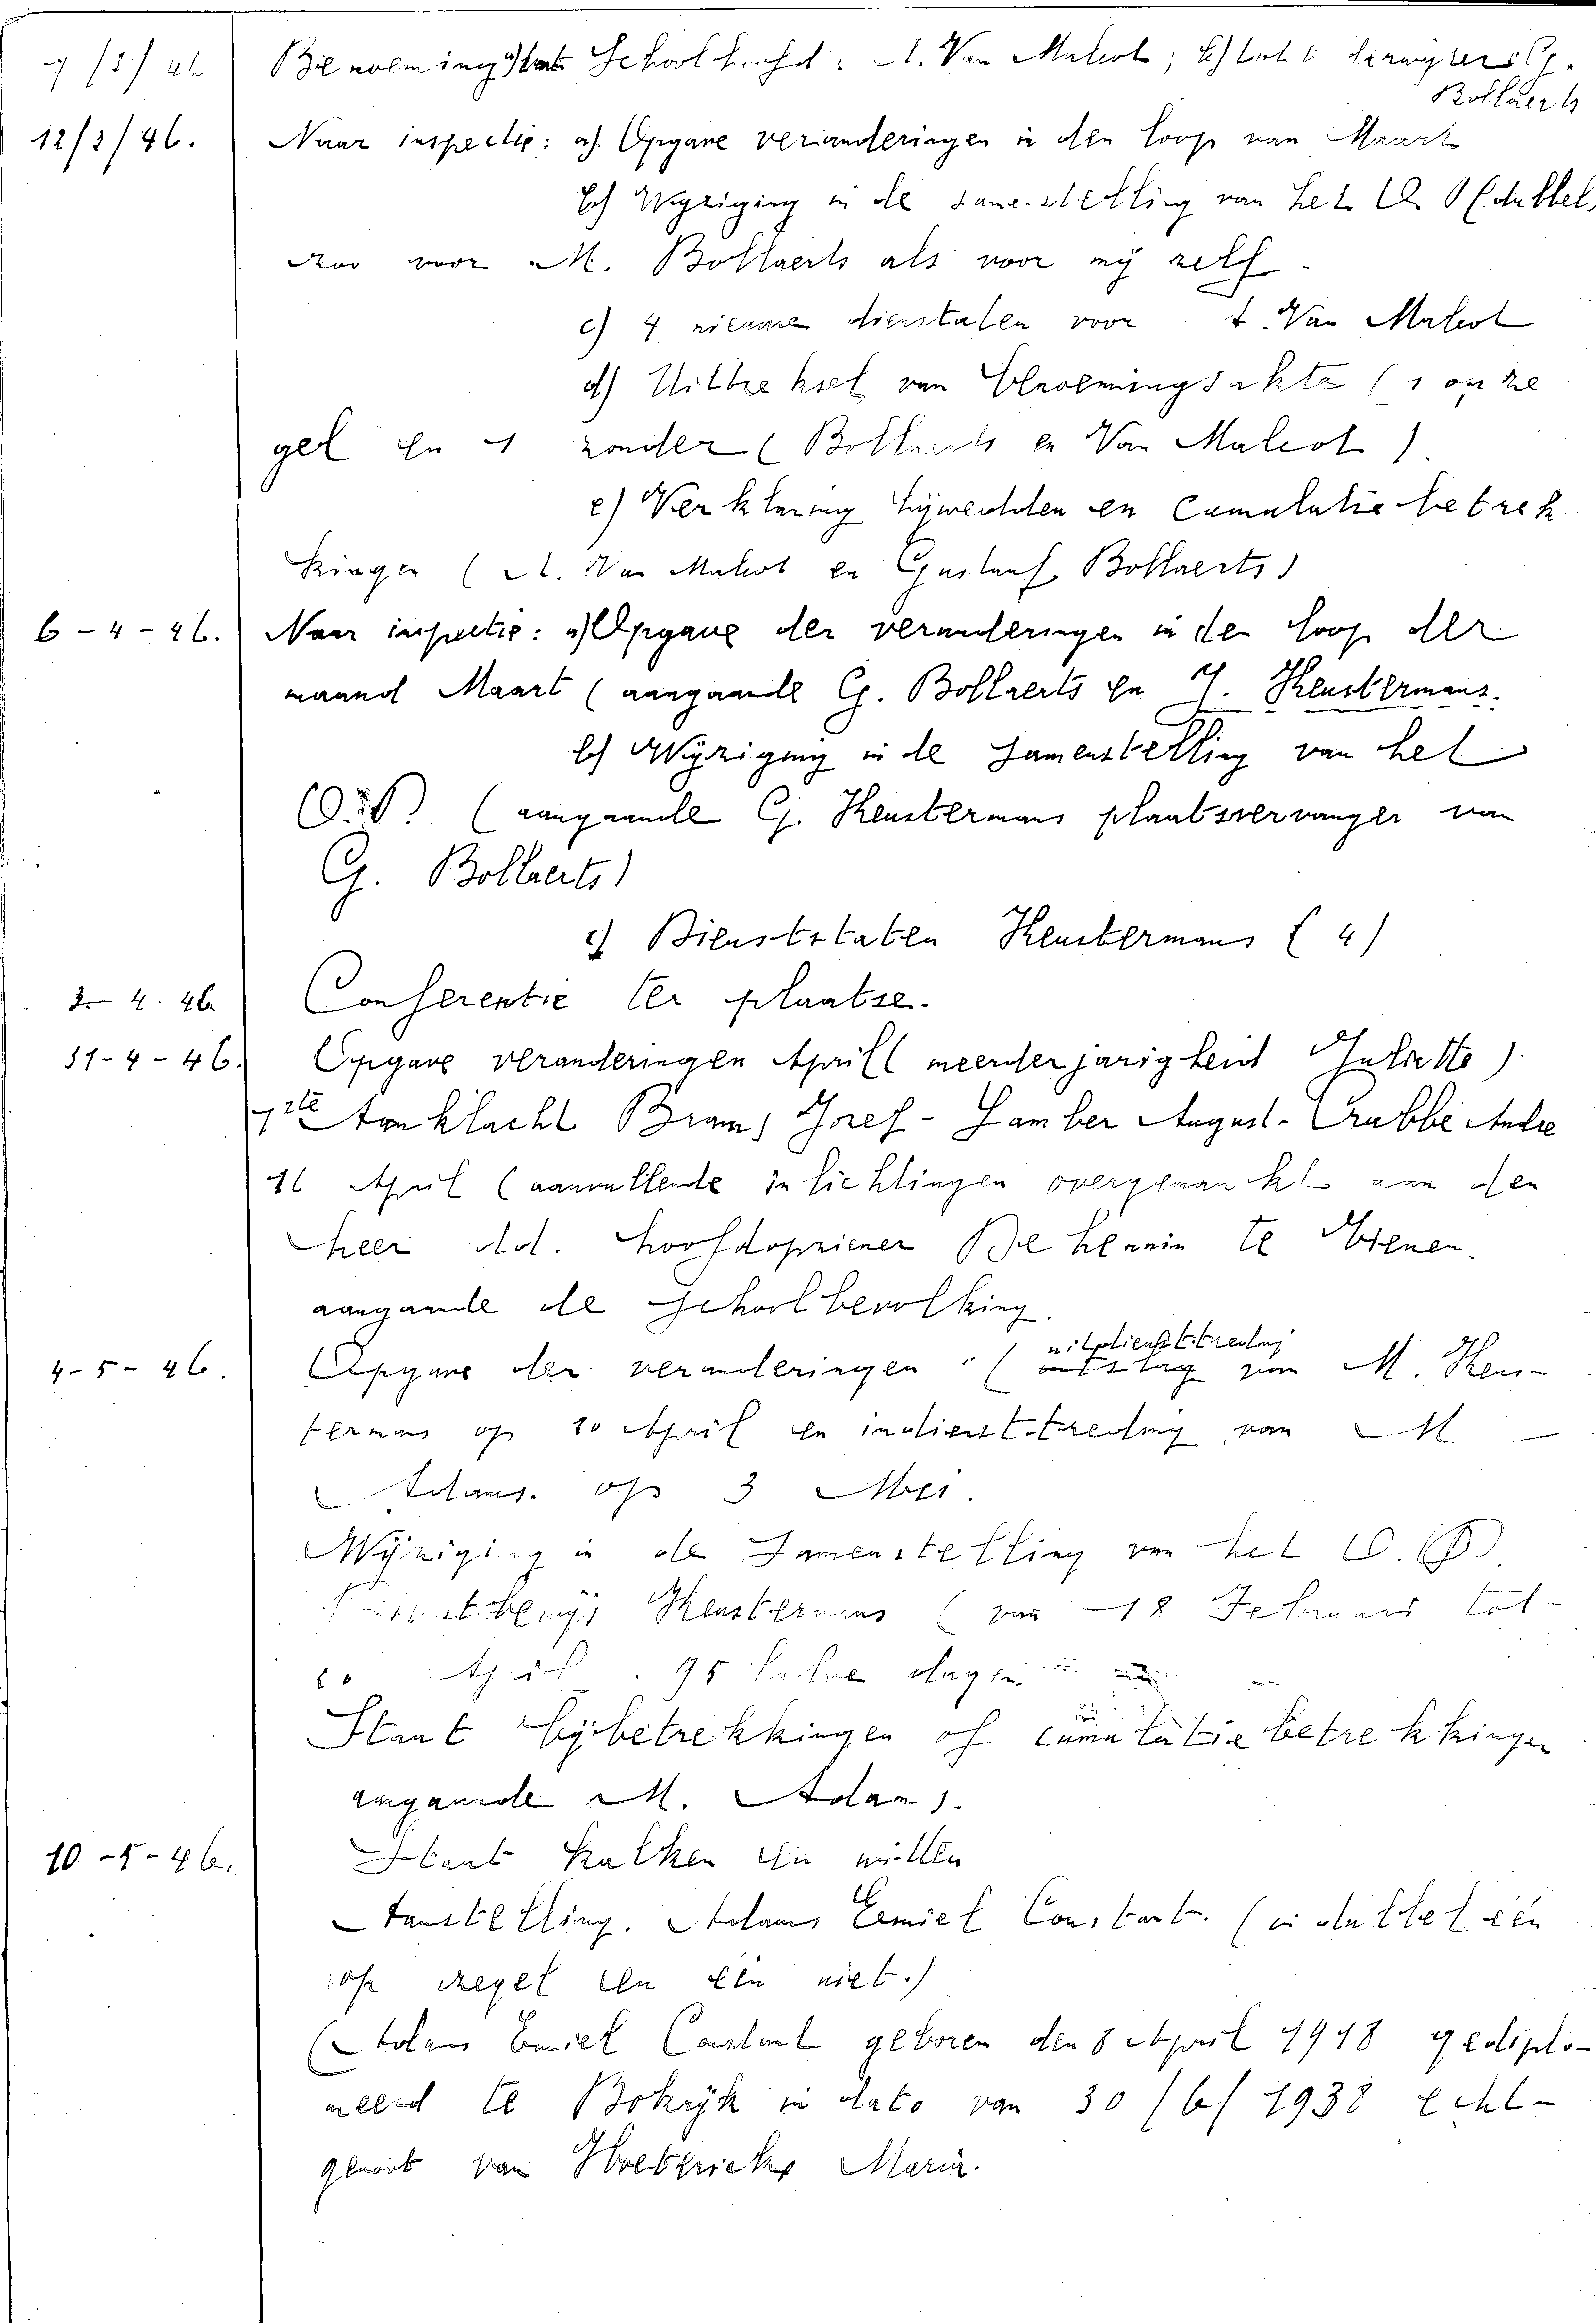 Benoeming tot Schoolhoofd: A. Van Malcot; b) tot G.
Bollaerts
12/3/46. Naar inspectie: a) Opgave veranderingen in den loop van Maart
b) Wyziging in de samenstelling van het O. P (dubbel,
voor M. Bollaerts als voor mij zelf.
c) 4 nieuwe dienstaten voor A. Van Malcot
d) Uittreksel van benoemingsakte (1 op ze
gel en 1 zonder (Bollaerts en Van Malcot)
e) Verklaring bijwedden en cumulatie betrek
kingen (A. Van Malcot en Gustaaf Bollaerts)
6-4-46. Naar inspectie: a) Opgave der veranderingen in den loop der
maand Maart (aangaande G. Bollaerts en J. Keustermans.
b) Wijziging in de Samenstelling van het
O.P. (aangaande G. Keustermans plaatsvervanger van
G. Bollaerts)
c) Dienststaten Keustermans (4)
3-4.46. Conferentie ter plaatse.
11-4-46. Opgave veranderingen April (meerderjarigheid
Aanklacht Brams Jozef - Lamber August - Crabbé André
16 April (aanvullende inlichtingen overgemaakt aan den
heer Ad. hoofdopziener te Thienen.
aangaande de schoolbevolking.
uitdiensttreding
4-5-46. Opgave der veranderingen (ontslag van M. Keus-
termans op 20 April en indiensttreding van M
Adams. op 3 Mei.
Wijziging in de Samenstelling van het O.P.
Keustermans (van 18 Februari tot
April. 95 dagen
Staat bijbetrekkingen of cumulatiebetrekkingen
aangaande M. Adams.
10-5-46. Staat
Aanstelling. Adams Emiel Constant. (in dubbel één
op zegel en één niet.)
(Adams Emiel Constant geboren den 8 April 1918 gediplo-
meerd te Bokrijk in dato van 30/6/1938 echt-
genoot van Maria.